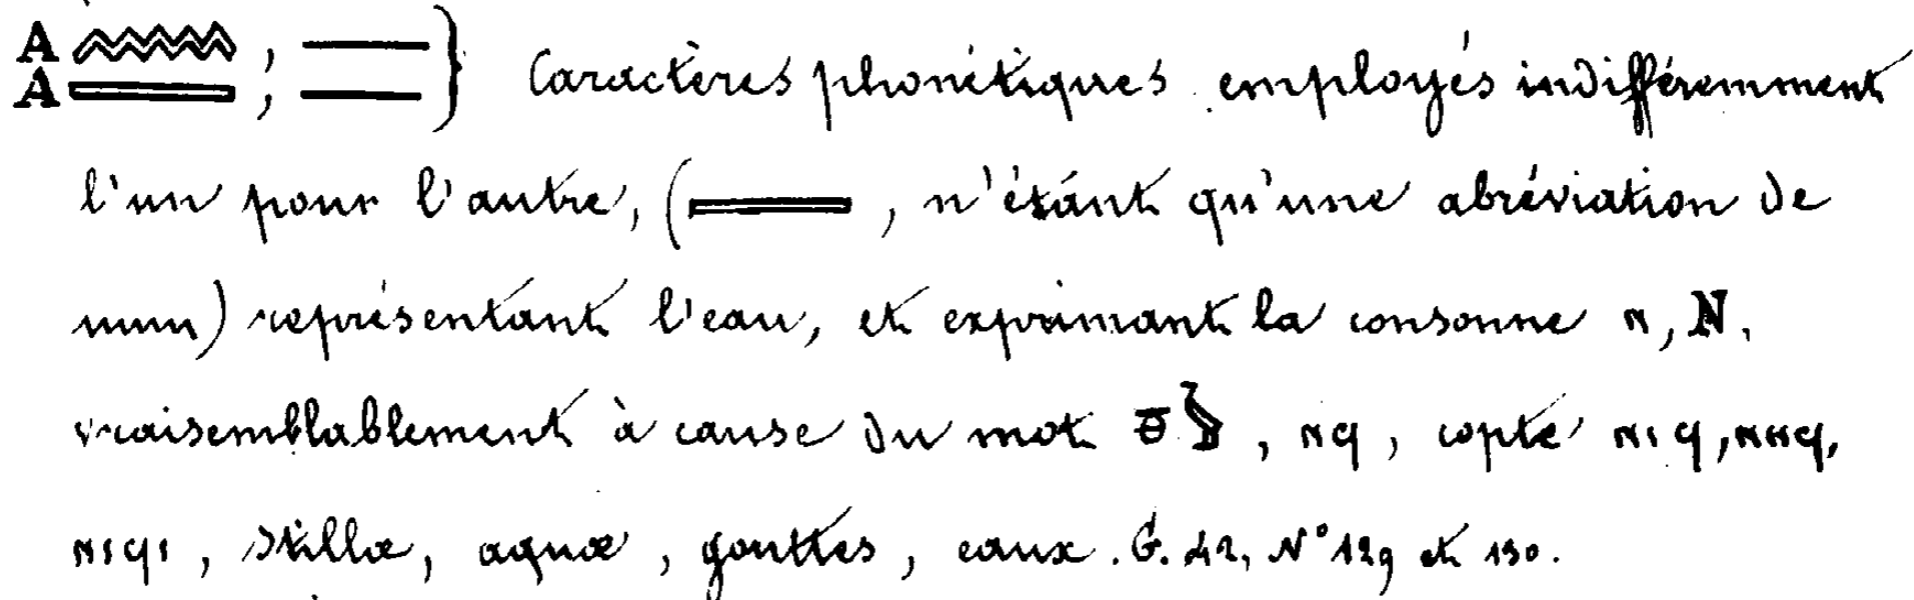 A 𓈖 ; — } Caractères phonétiques employés indifféremment
A ; —
l'un pour l'autre, ( , n'étant qu'une abréviation de
) représentant l'eau, et exprimant la consonne ⲛ, N.
vraisemblablement à cause du mot , ⲛϥ, copte ⲛⲓϥ, ⲛⲏϥ,
ⲛⲓϥⲓ, stillæ, aquæ, gouttes, eaux. G. 42, N° 129 et 130.